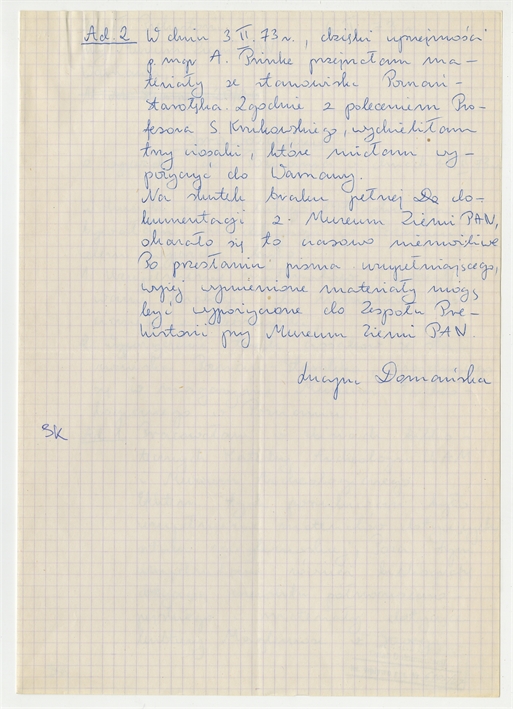 Ad. 2 W dniu 3 II. 73 r., dzięki uprzejmości
p. mgr A. Prinke przejrzałam ma-
teriały ze stanowiska Poznań-
Starołęka. Zgodnie z poleceniem Pro-
fesora S Krukowskiego, wydzieliłam
trzy ciosaki, które miałam wy-
pożyczyć do Warszawy.
Na skutek braku pełnej do-
kumentacji z Museum Ziemi PAN,
okazało się to czasowo niemożliwe
Po przesłaniu pisma uzupełniającego,
wyżej wymienione materiały mogą
być wypożyczone do Zespołu Pre-
historii przy Museum Ziemi PAN.
Lucyna Domańska
SK